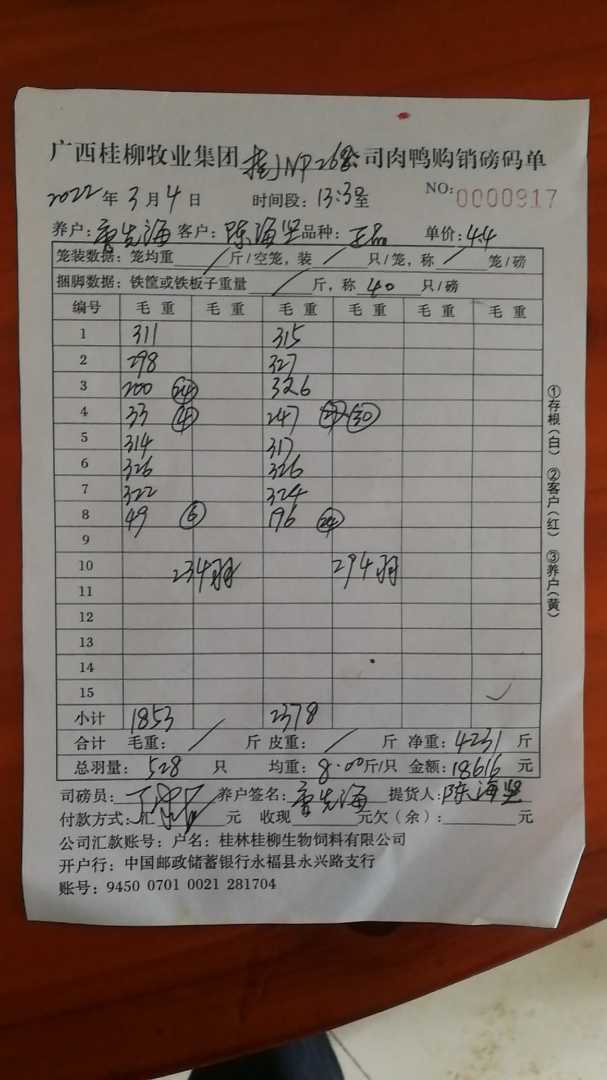 广西桂柳牧业集团 桂J NP 268 公司肉鸭购销磅码单
2022年3月4日 时间段：13:3 NO: 0000917
养户： 先海 客户：陈海坚 品种：正品 单价：4.4
笼装数据：笼均重 / 斤/空笼，装 / 只/笼，称 / 笼/磅
捆脚数据：铁筐或铁板子重量 / 斤，称 40 只/磅
编号 毛重 毛重 毛重 毛重 毛重 毛重
1 311 315
2 298 327
3 200 24 326
4 33 4 247 30
5 314 317
6 326 326
7 322 324
8 49 6 196 24
9
10 234羽 294羽
11
12
13
14
15
小计 1853 2378
合计 毛重： / 斤 皮重： / 斤 净重：4231 斤
总羽量： 528 只 均重：8.00斤/只 金额：18616 元
司磅员： 养户签名： 先海 提货人：陈海坚
付款方式：汇 元 收现 元 欠（余）： 元
公司汇款账号：户名：桂林桂柳生物饲料有限公司
开户行：中国邮政储蓄银行永福县永兴路支行
账号：9450 0701 0021 281704
①存根（白） ②客户（红） ③养户（黄）